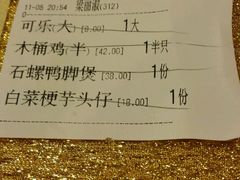 11-05 20:54 梁丽淑(312)
可乐(大) [8.00] 1大
木桶鸡(半) [42.00] 1半只
石螺鸭脚煲 [38.00] 1份
白菜梗芋头仔 [18.00] 1份